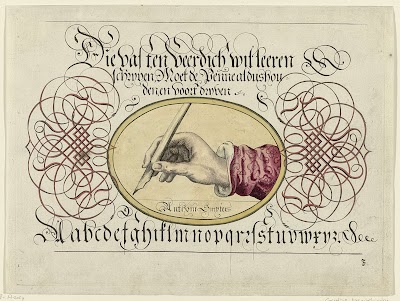 Die vas ten Veerdich wil leeren
schryven, Moet de Penne aldus hou
den en voort dryven
Anthoni Smyters
Aabcdefghiklmnopqrrſstuvwxyz